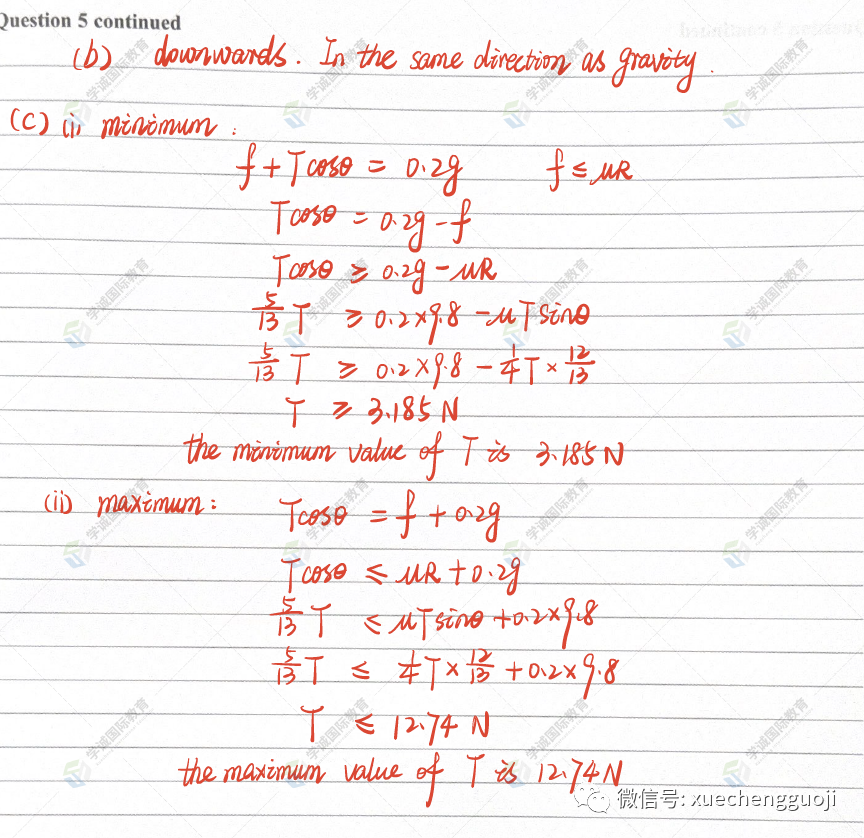 Question 5 continued
(b) downwards. In the same direction as gravity.
(c) (i) minimum:
f + Tcosθ = 0.2g f ≤ μR
Tcosθ = 0.2g - f
Tcosθ ≥ 0.2g - μR
5/13 T ≥ 0.2×9.8 - μTsinθ
5/13 T ≥ 0.2×9.8 - 1/4 T × 12/13
T ≥ 3.185 N
the minimum value of T is 3.185 N
(ii) maximum: Tcosθ = f + 0.2g
Tcosθ ≤ μR + 0.2g
5/13 T ≤ μTsinθ + 0.2×9.8
5/13 T ≤ 1/4 T × 12/13 + 0.2×9.8
T ≤ 12.74 N
the maximum value of T is 12.74 N
微信号: xuechengguoji
学诚国际教育